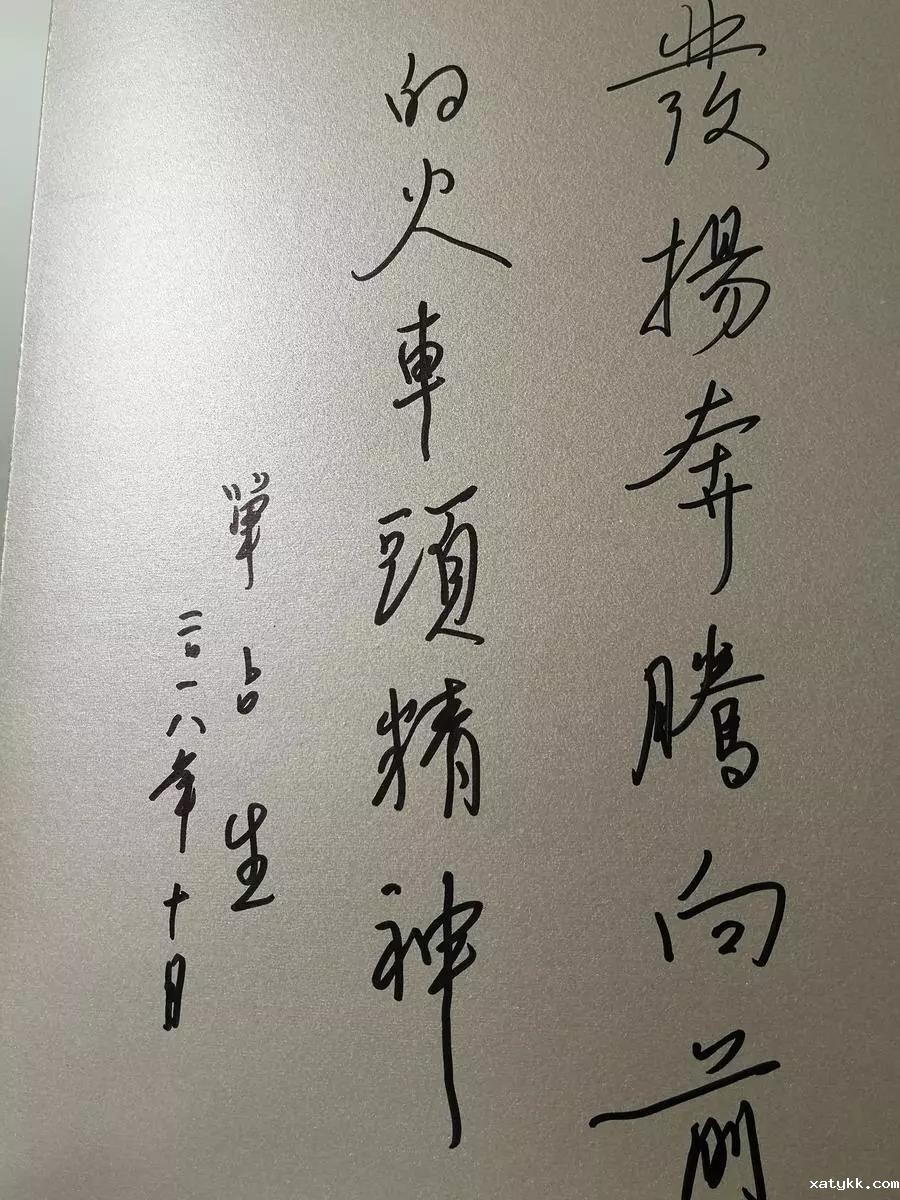 發揚奔騰向前
的火車頭精神
單占生
二〇一八年十月
xatykk.com